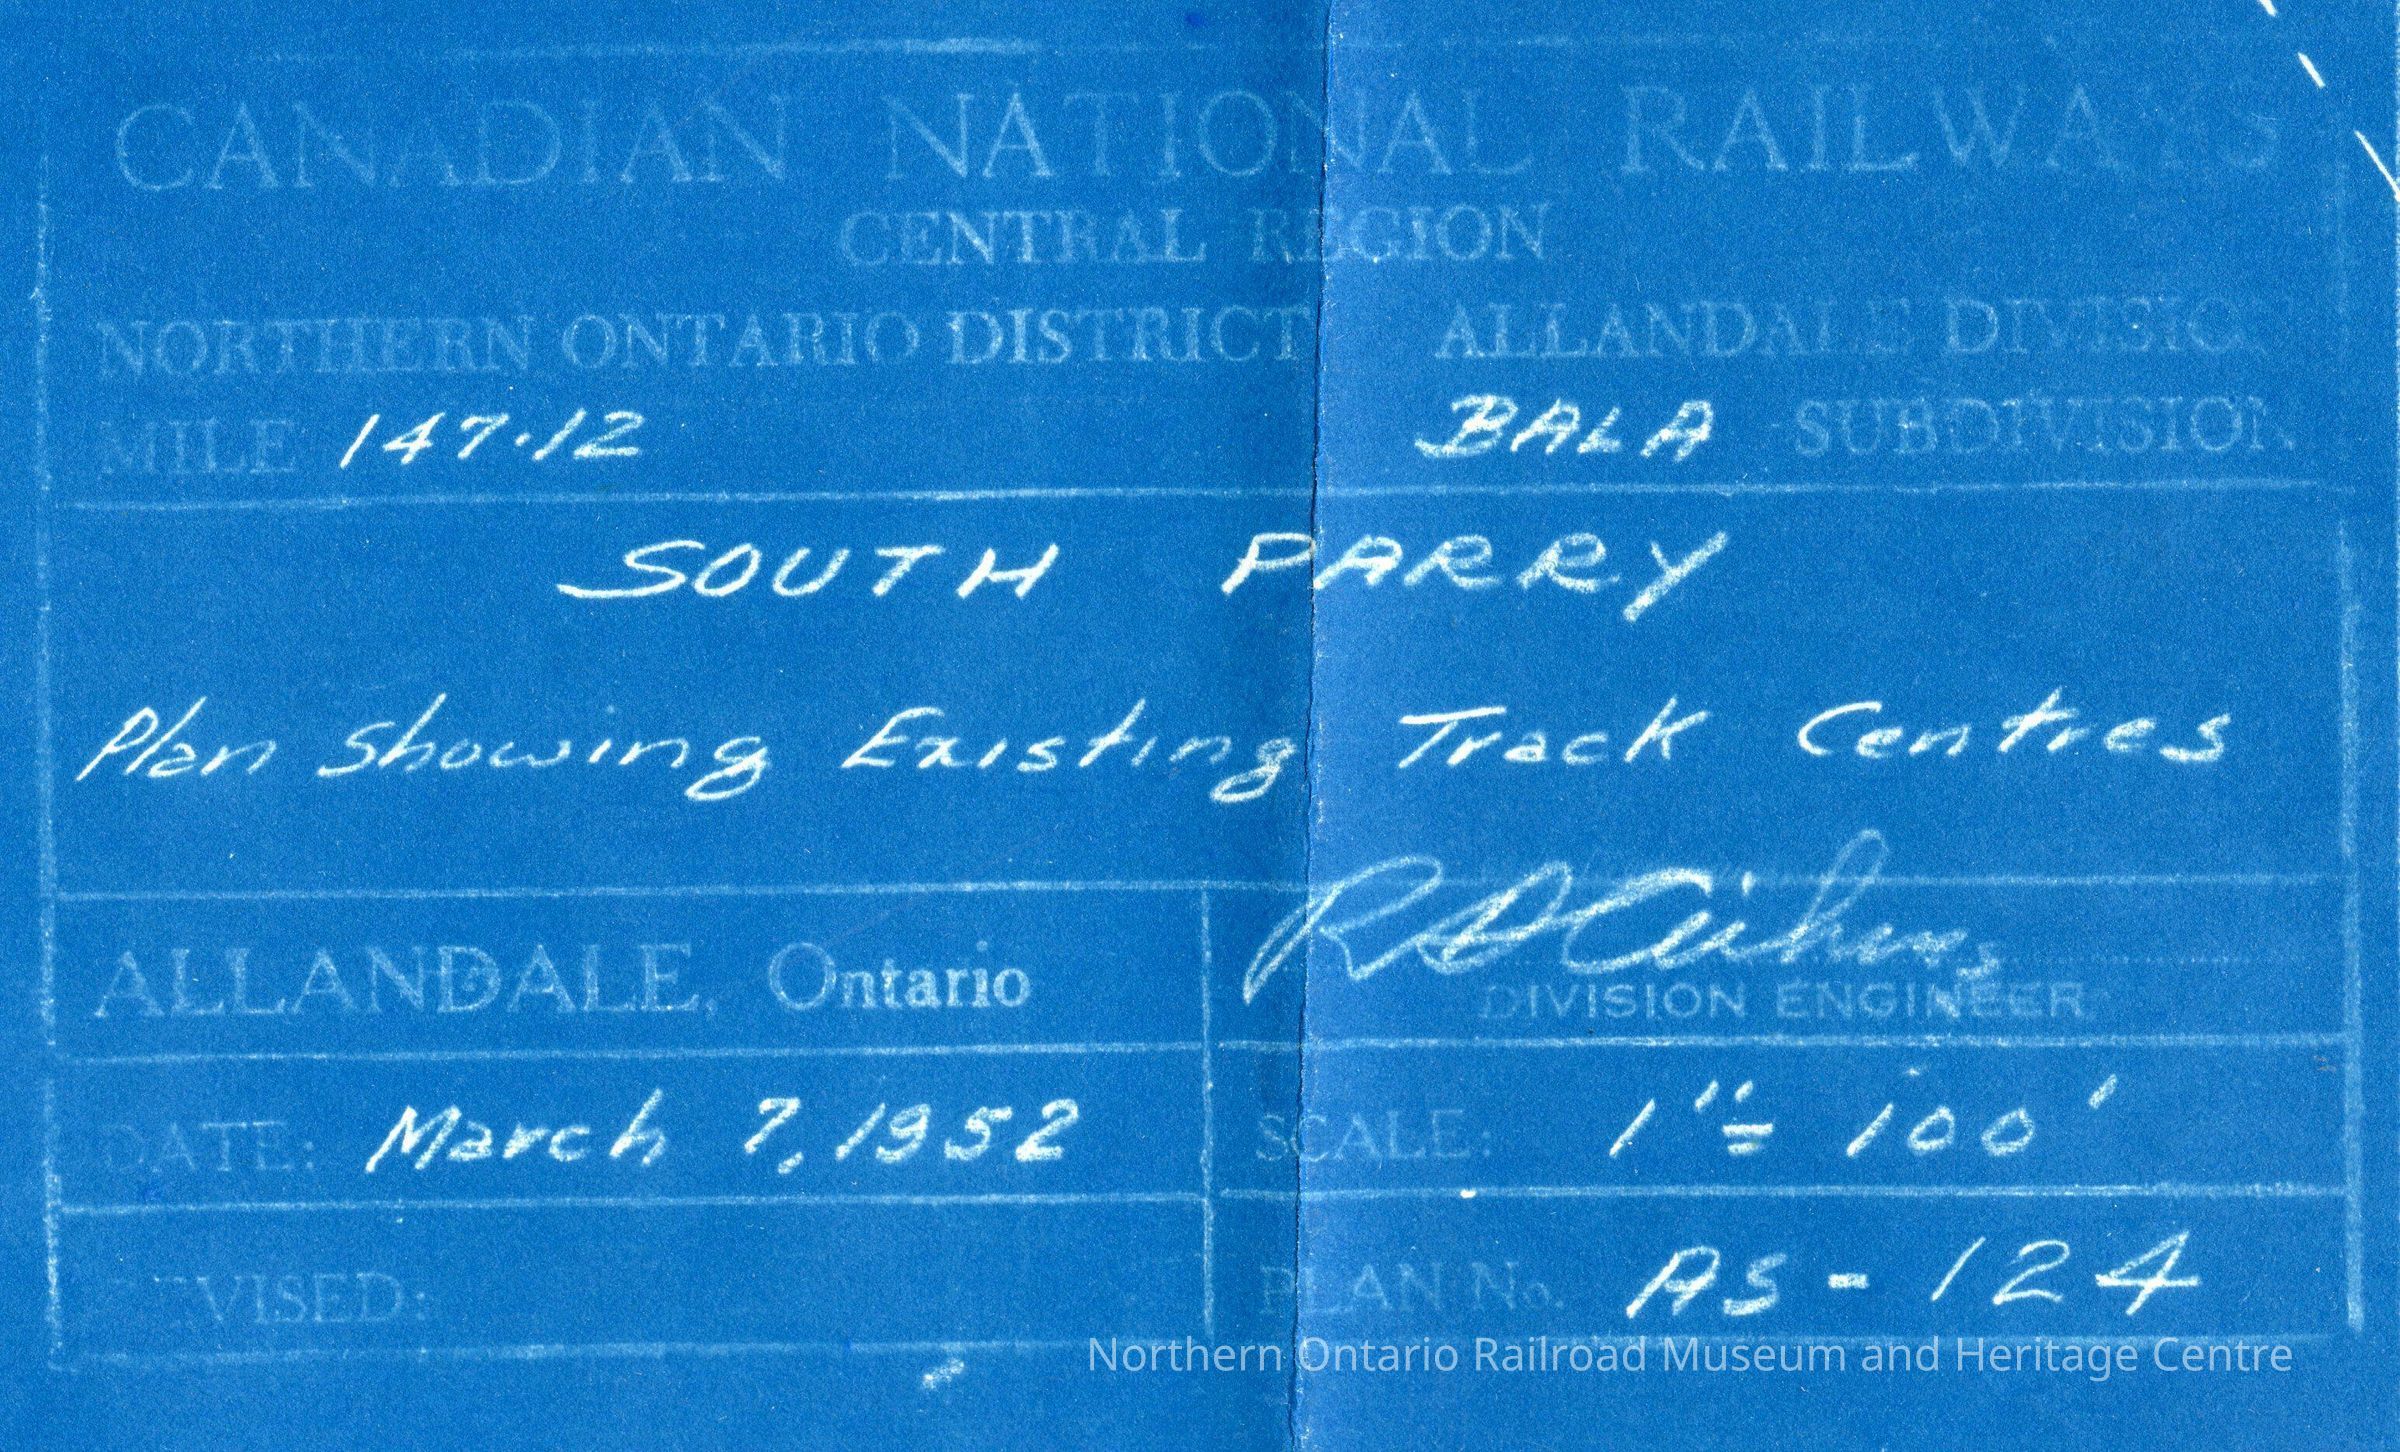 CANADIAN NATIONAL RAILWAYS
CENTRAL REGION
NORTHERN ONTARIO DISTRICT ALLANDALE DIVISION
MILE 147.12 BALA SUBDIVISION
SOUTH PARRY
Plan Showing Existing Track Centres
ALLANDALE, Ontario
DIVISION ENGINEER
DATE: March 7, 1952 SCALE: 1"= 100'
REVISED: PLAN No. AS-124
Northern Ontario Railroad Museum and Heritage Centre